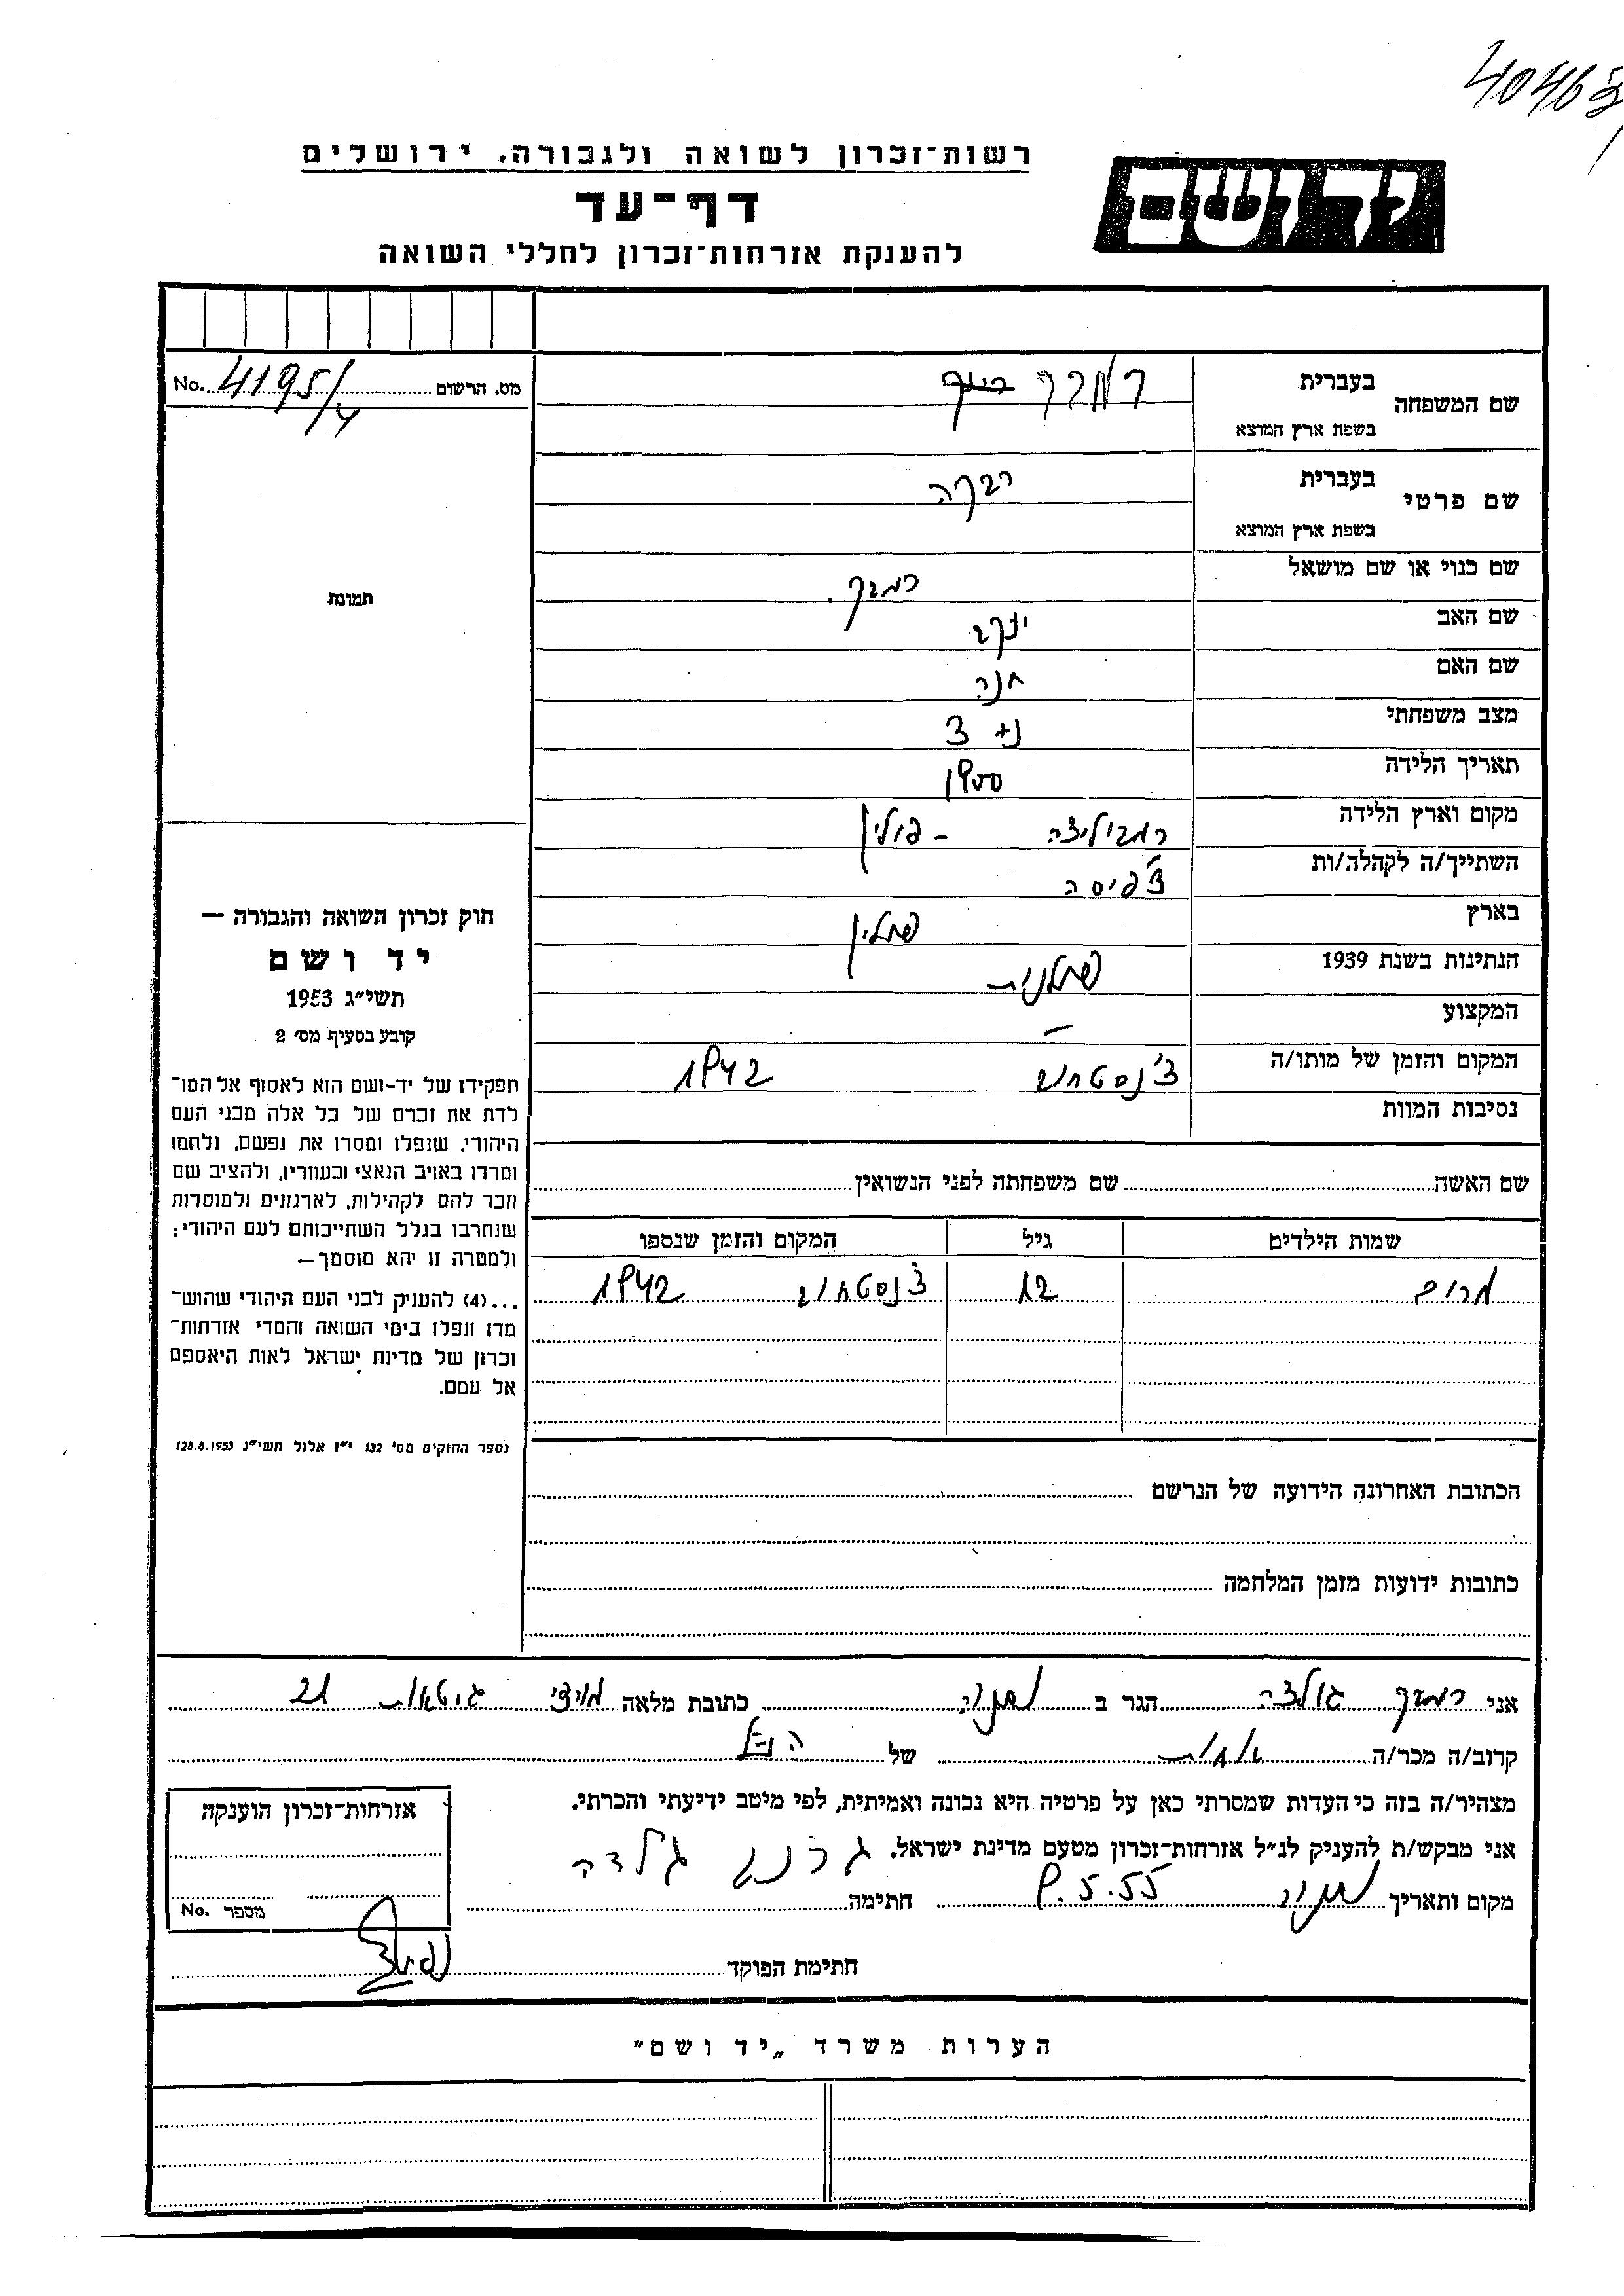 40463
רשות־זכרון לשואה ולגבורה, ירושלים
יד ושם
דף־עד
להענקת אזרחות־זכרון לחללי השואה
מס. הרשום No. 4195/
שם המשפחה
בעברית
בשפת ארץ המוצא
שם פרטי
בעברית רבקה
בשפת ארץ המוצא
שם כנוי או שם מושאל
שם האב יעקב
שם האם חנה
מצב משפחתי נ + 3
תאריך הלידה 1900
מקום וארץ הלידה - פולין
השתייך/ה לקהלה/ות
בארץ פולין
הנתינות בשנת 1939 פולנית
המקצוע –
המקום והזמן של מותו/ה צ'נסטחוב 1942
נסיבות המוות
שם האשה שם משפחתה לפני הנשואין
שמות הילדים גיל המקום והזמן שנספו
מרים 12 צ'נסטחוב 1942
הכתובת האחרונה הידועה של הנרשם
כתובות ידועות מזמן המלחמה
תמונת
חוק זכרון השואה והגבורה —
יד ושם
תשי״ג 1953
קובע בסעיף מס׳ 2
תפקידו של יד-ושם הוא לאסוף אל המו־
לדת את זכרם של כל אלה מבני העם
היהודי, שנפלו ומסרו את נפשם, נלחמו
ומרדו באויב הנאצי ובעוזריו, ולהציב שם
וזכר להם לקהילות, לארגונים ולמוסדות
שנחרבו בגלל השתייכותם לעם היהודי;
ולמטרה זו יהא מוסמך —
...(4) להעניק לבני העם היהודי שהוש־
מדו ונפלו בימי השואה והמרי אזרחות־
זכרון של מדינת ישראל לאות היאספם
אל עמם.
(ספר החוקים מס׳ 132 י״ז אלול תשי״ג 28.8.1953)
אני גולדה הגר ב נתניה כתובת מלאה 21
קרוב/ה מכר/ה אחות של הנ״ל
מצהיר/ה בזה כי העדות שמסרתי כאן על פרטיה היא נכונה ואמיתית, לפי מיטב ידיעתי והכרתי.
אני מבקש/ת להעניק לנ״ל אזרחות־זכרון מטעם מדינת ישראל.
מקום ותאריך נתניה 9.5.55 חתימה
חתימת הפוקד
אזרחות־זכרון הוענקה
מספר No.
הערות משרד „יד ושם״